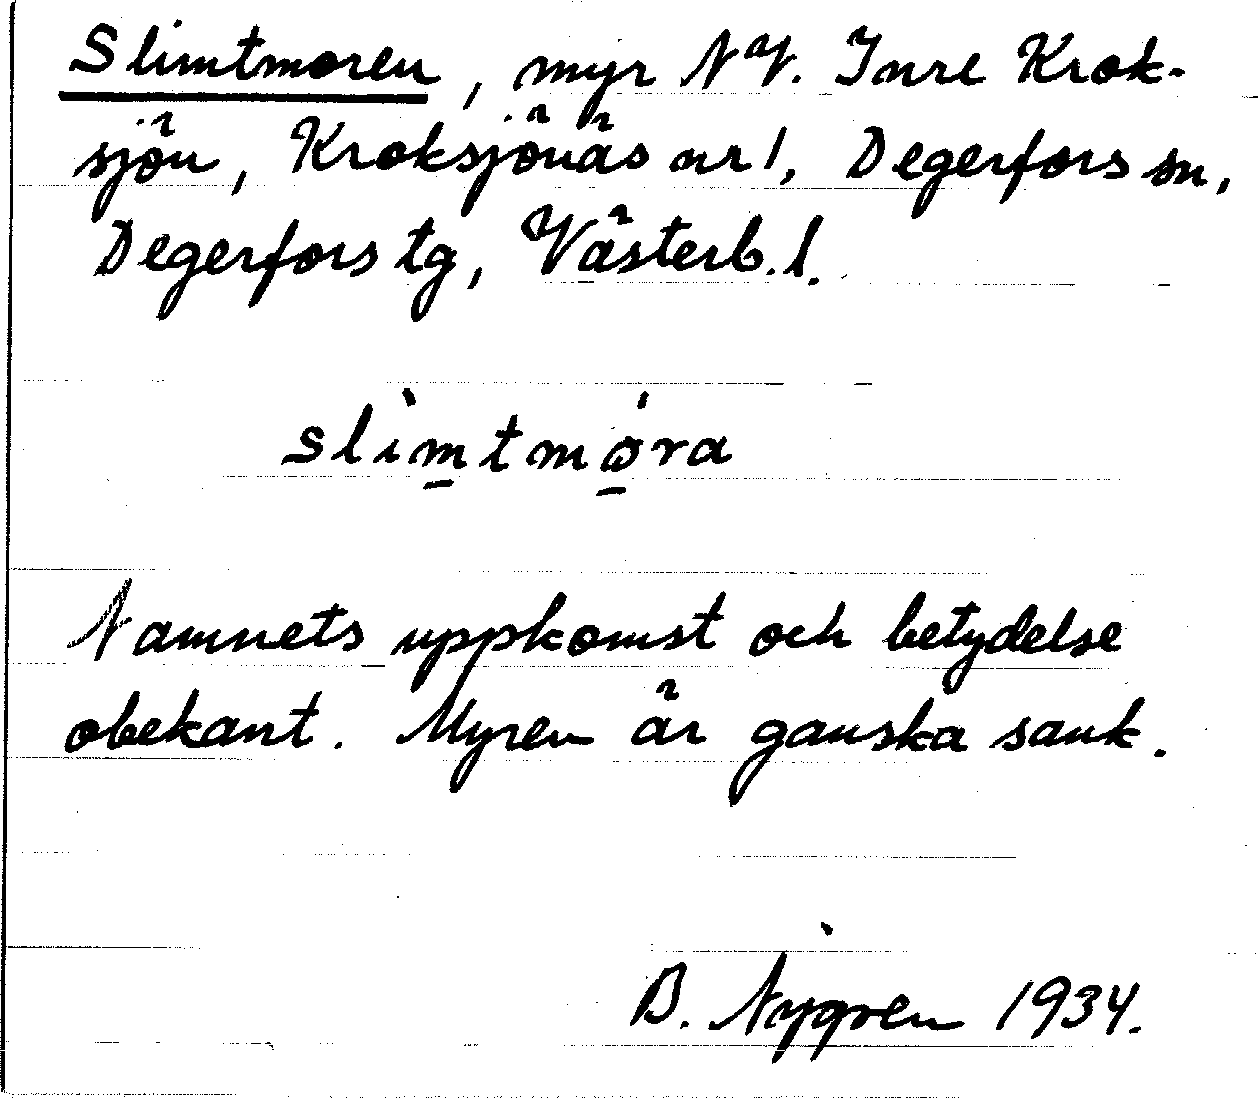 Slimtmoren, myr NV. Inre Krok-
sjön, Kroksjönäs nr 1, Degerfors sn,
Degerfors tg, Västerb. l.
slìmtmǿra
Namnets uppkomst och betydelse
obekant. Myren är ganska sank.
B. Nygren 1934.